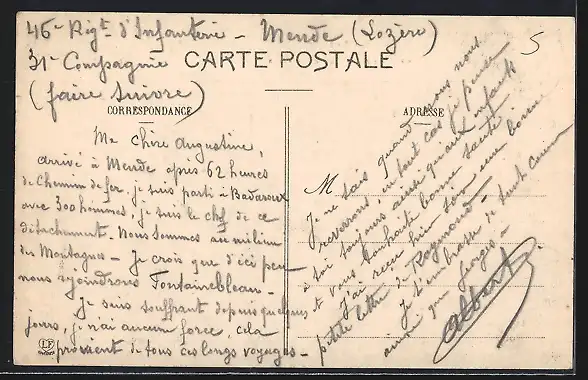 46e Rigt d'Infanterie - Mende (Lozère)
31e Compagnie
(faire suivre)
CARTE POSTALE
CORRESPONDANCE
ADRESSE
5
Ma chère Augustine,
arrivé à Mende après 62 heures
de Chemin de fer, je suis parti à Badaroux
avec 300 hommes, je suis le chef de ce
détachement. Nous sommes au milieu
des Montagnes - Je crois que d'ici peu
nous rejoindrons Fontainebleau -
Je suis souffrant depuis quelques
jours, je n'ai aucune force, cela
provient de tous ces longs voyages -
M
Je ne sais quand nous nous
reverrons, en tout cas je pense
à toi toujours ainsi qu'aux enfants
et vous souhaite bonne santé
J'ai reçu hier soir une bonne
petite lettre de Raymond -
Je t'embrasse de tout Coeur
ainsi que Georges -
Albert
LF